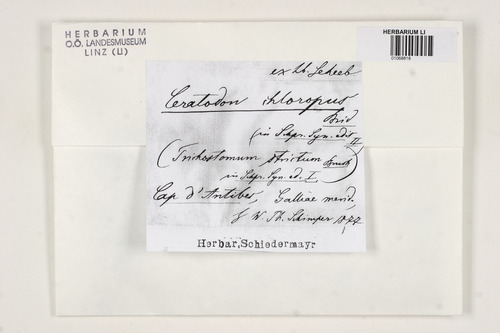 HERBARIUM
O.Ö. LANDESMUSEUM
LINZ (LI)
HERBARIUM LI
ex hb. Geheeb
Ceratodon chloropus
Brid
(in Schpr. Syn. edit II
(Trichostomum strictum Bruch)
in Schpr. Syn. ed. I.
Cap d'Antibes, Galliae merid.
W. Ph. Schimper
Herbar. Schiedermayr